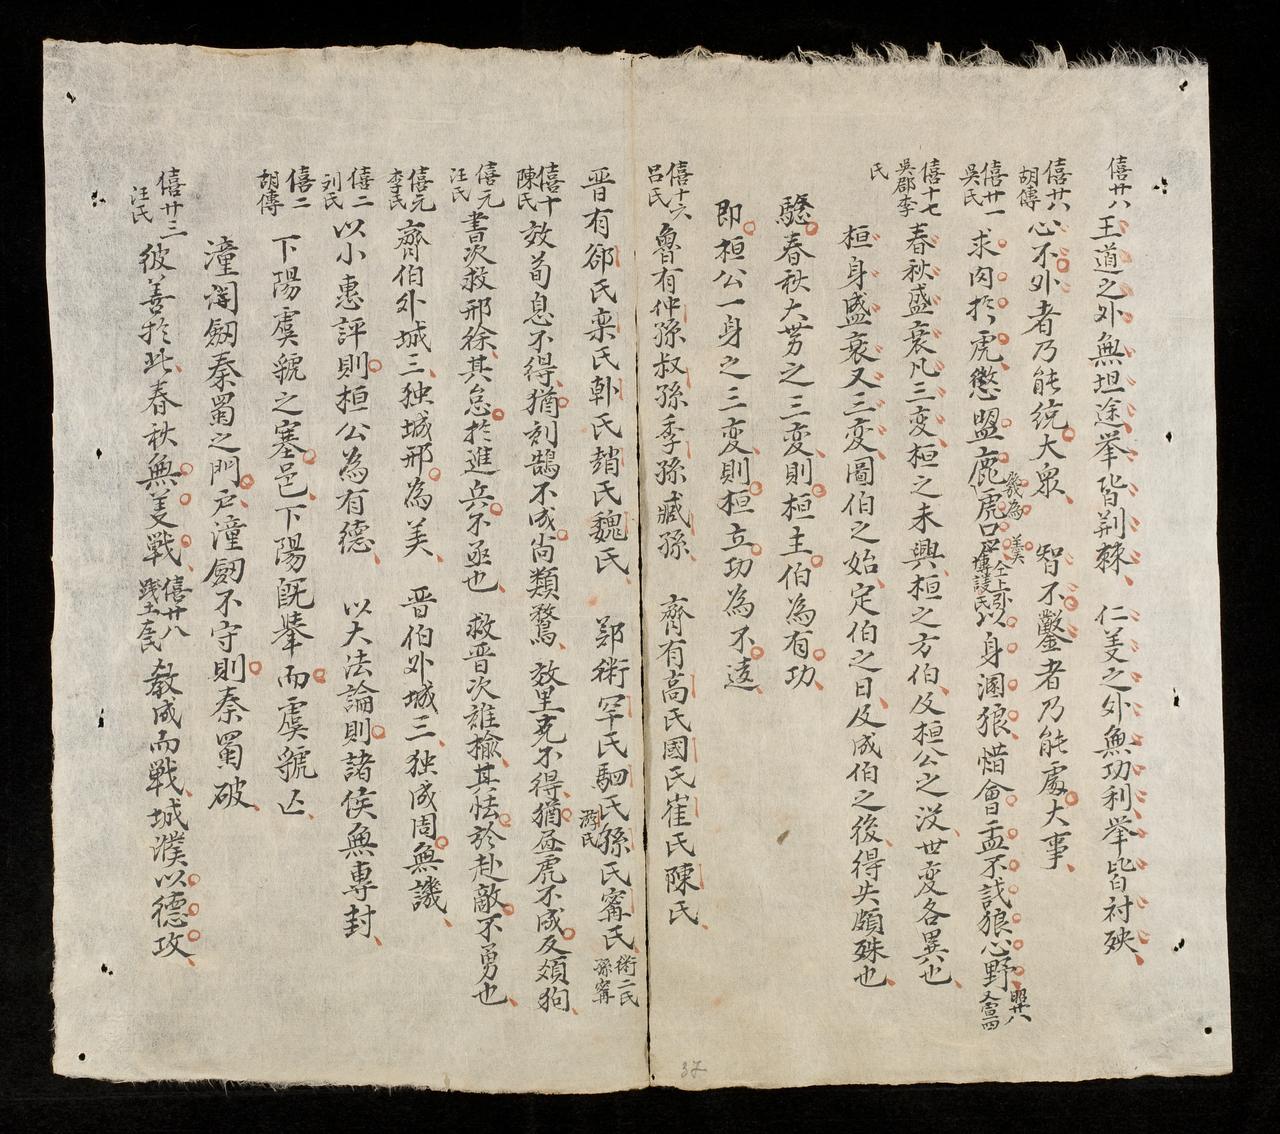 僖廿八 王道之外無坦途举皆荆棘 仁義之外無功利举皆衬殃
僖廿八胡傳 心不外者乃能統大衆 智不鑿者乃能處大事
僖廿一吳氏 求肉於虎懲盟鹿虎口 以身溷狼惜會盂不戒狼心野 昭廿八 宣四
僖十七吳郡李氏 春秋盛衰凡三变桓之未興桓之方伯及桓公之没世变各異也
桓身盛衰又三变圖伯之始定伯之日及成伯之後得失頗殊也
驗春秋大势之三变則桓主伯為有功
即桓公一身之三变則桓立功為不遠
僖十六吕氏 魯有仲孫叔孫季孫臧孫 齊有高氏國氏崔氏陳氏
晋有郤氏栾氏韩氏趙氏魏氏 鄭術罕氏駟氏游氏孫氏甯氏 術二氏孫甯
僖十陳氏 效荀息不得猶刻鵠不成尚類鶩 效里克不得猶昼虎不成反類狗
僖元汪氏 書次救邢徐其怠於進兵不亟也 救晋次雍榆其怯於赴敵不勇也
僖元李氏 齊伯外城三独城邢為美 晋伯外城三独成周無譏
僖二刘氏 以小惠評則桓公為有德 以大法論則諸侯無專封
僖二胡傳 下陽虞虢之塞邑下陽既举而虞虢亡
潼関劔秦蜀之門户潼劔不守則秦蜀破
僖廿三汪氏 彼善於此春秋無義戦 僖廿八践土 教成而戦城濮以德攻
37